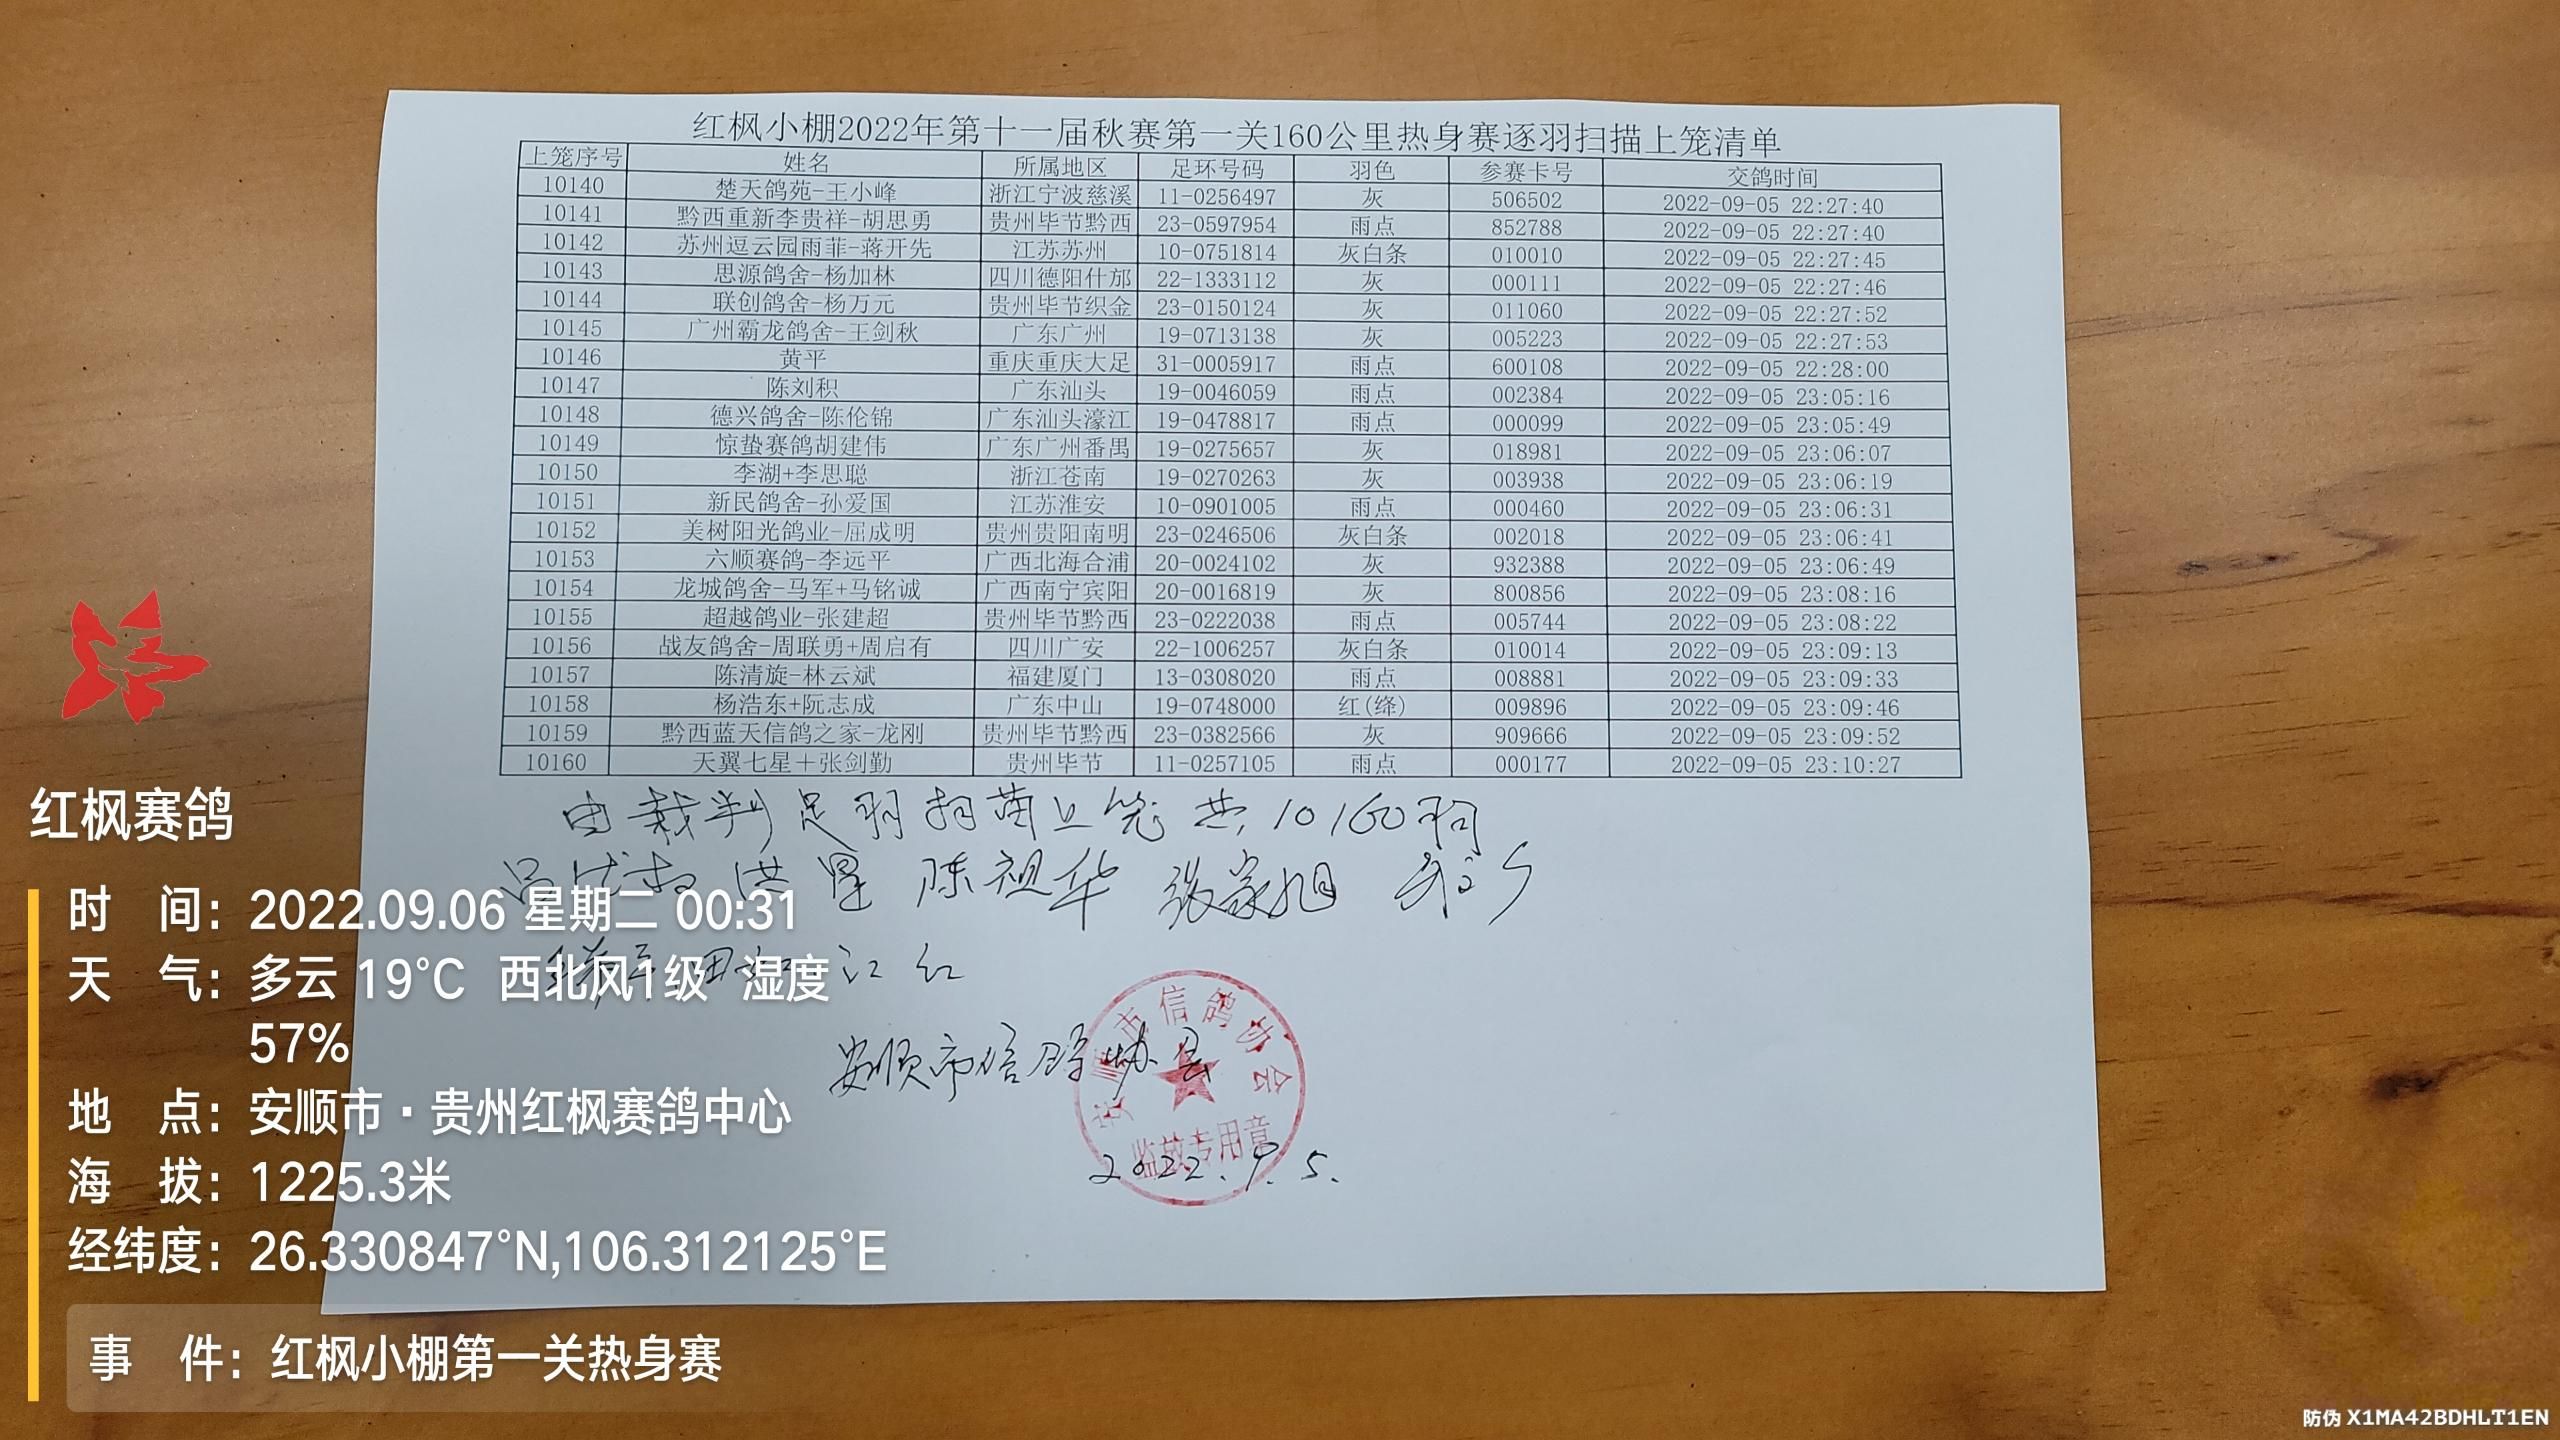 红枫小棚2022年第十一届秋赛第一关160公里热身赛逐羽扫描上笼清单
上笼序号 姓名 所属地区 足环号码 羽色 参赛卡号 交鸽时间
10140 楚天鸽苑-王小峰 浙江宁波慈溪 11-0256497 灰 506502 2022-09-05 22:27:40
10141 黔西重新李贵祥-胡思勇 贵州毕节黔西 23-0597954 雨点 852788 2022-09-05 22:27:40
10142 苏州逗云园雨菲-蒋开先 江苏苏州 10-0751814 灰白条 010010 2022-09-05 22:27:45
10143 思源鸽舍-杨加林 四川德阳什邡 22-1333112 灰 000111 2022-09-05 22:27:46
10144 联创鸽舍-杨万元 贵州毕节织金 23-0150124 灰 011060 2022-09-05 22:27:52
10145 广州霸龙鸽舍-王剑秋 广东广州 19-0713138 灰 005223 2022-09-05 22:27:53
10146 黄平 重庆重庆大足 31-0005917 雨点 600108 2022-09-05 22:28:00
10147 陈刘积 广东汕头 19-0046059 雨点 002384 2022-09-05 23:05:16
10148 德兴鸽舍-陈伦锦 广东汕头濠江 19-0478817 雨点 000099 2022-09-05 23:05:49
10149 惊蛰赛鸽胡建伟 广东广州番禺 19-0275657 灰 018981 2022-09-05 23:06:07
10150 李湖+李思聪 浙江苍南 19-0270263 灰 003938 2022-09-05 23:06:19
10151 新民鸽舍-孙爱国 江苏淮安 10-0901005 雨点 000460 2022-09-05 23:06:31
10152 美树阳光鸽业-屈成明 贵州贵阳南明 23-0246506 灰白条 002018 2022-09-05 23:06:41
10153 六顺赛鸽-李远平 广西北海合浦 20-0024102 灰 932388 2022-09-05 23:06:49
10154 龙城鸽舍-马军+马铭诚 广西南宁宾阳 20-0016819 灰 800856 2022-09-05 23:08:16
10155 超越鸽业-张建超 贵州毕节黔西 23-0222038 雨点 005744 2022-09-05 23:08:22
10156 战友鸽舍-周联勇+周启有 四川广安 22-1006257 灰白条 010014 2022-09-05 23:09:13
10157 陈清旋-林云斌 福建厦门 13-0308020 雨点 008881 2022-09-05 23:09:33
10158 杨浩东+阮志成 广东中山 19-0748000 红(绛) 009896 2022-09-05 23:09:46
10159 黔西蓝天信鸽之家-龙刚 贵州毕节黔西 23-0382566 灰 909666 2022-09-05 23:09:52
10160 天翼七星+张剑勤 贵州毕节 11-0257105 雨点 000177 2022-09-05 23:10:27
由裁判足羽扫苗上笼共10160羽
洪星 陈祖华 张家旭
江红
安顺市信鸽协会
安顺市信鸽协会
监放专用章
2022.9.5.
红枫赛鸽
时 间：2022.09.06 星期二 00:31
天 气：多云 19℃ 西北风1级 湿度
57%
地 点：安顺市·贵州红枫赛鸽中心
海 拔：1225.3米
经纬度：26.330847°N,106.312125°E
事 件：红枫小棚第一关热身赛
防伪 X1MA42BDHLT1EN